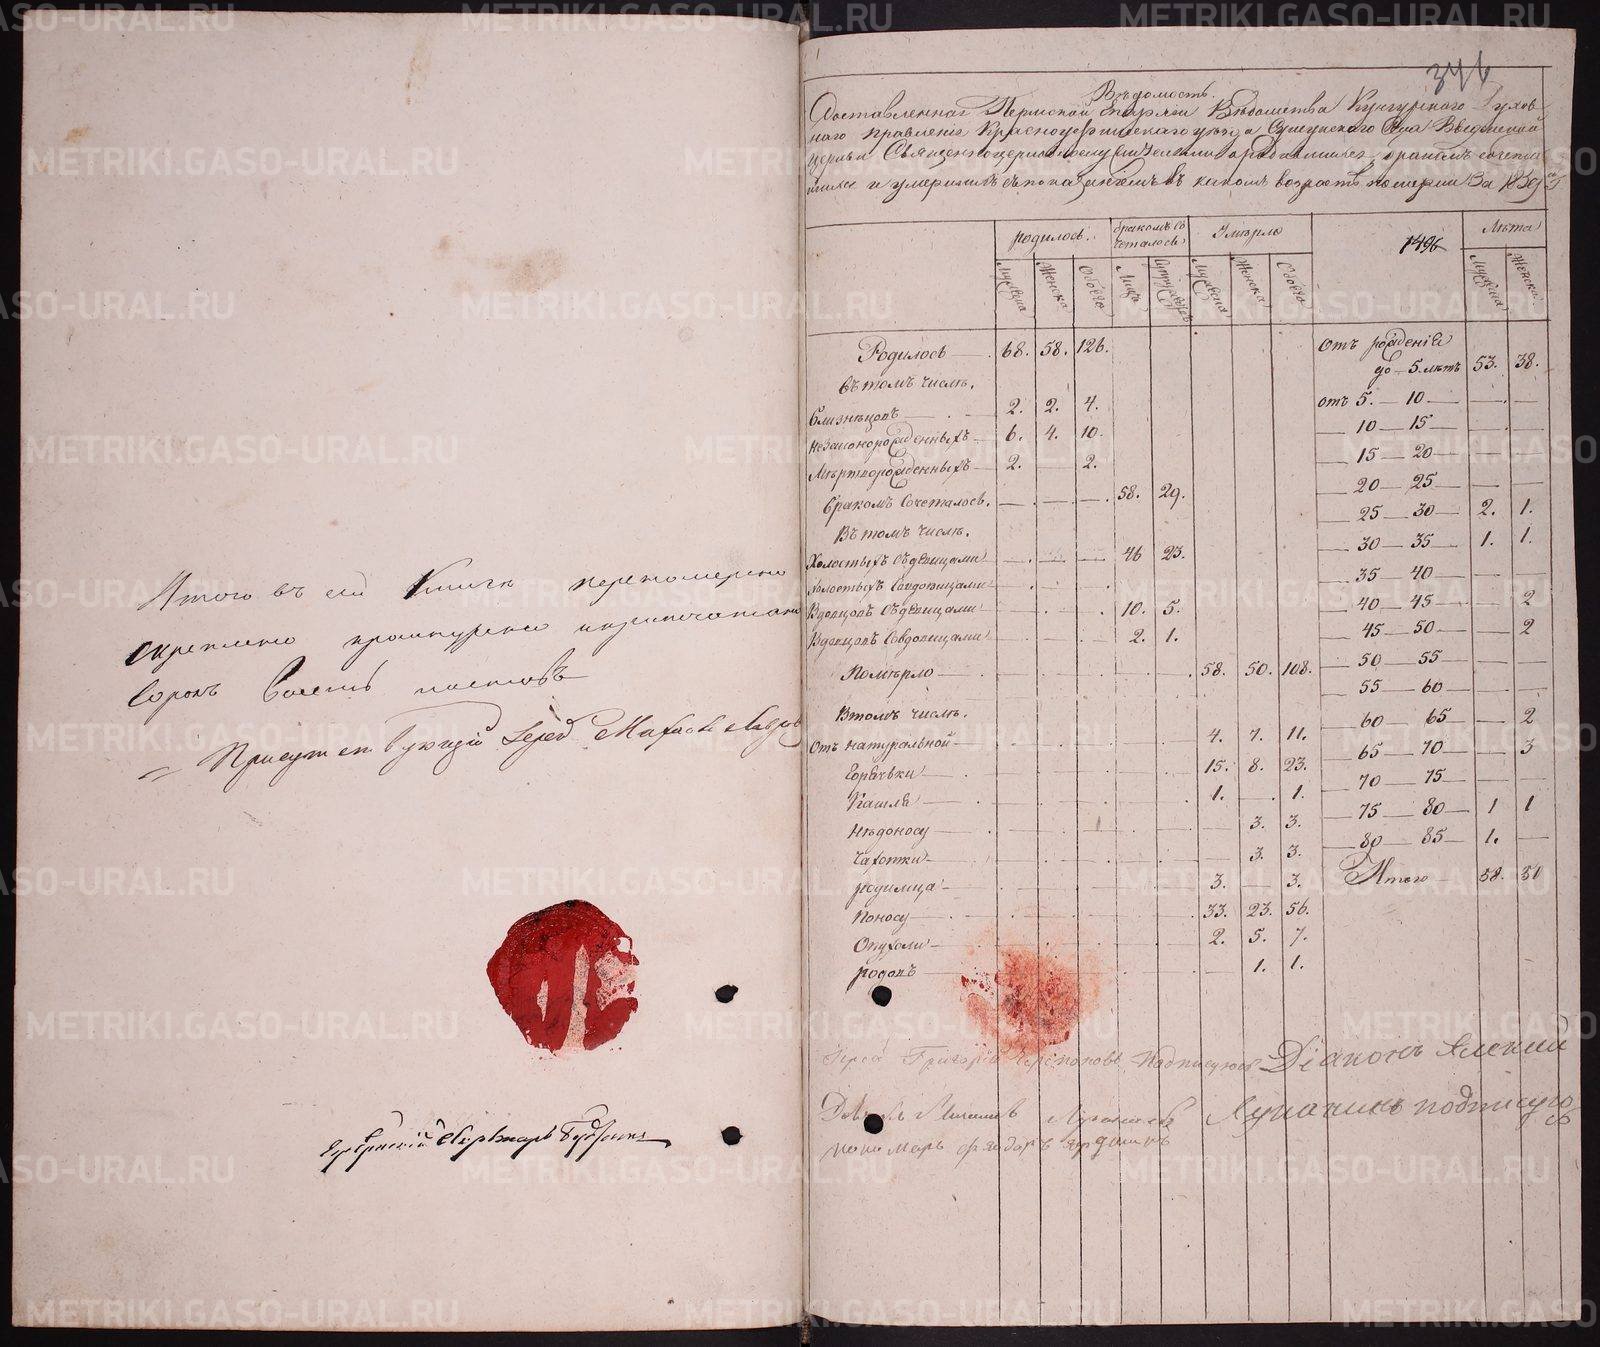 Итого въ сей Книгѣ перенумеровано
скреплено прошнуровано и припечатано
сорокъ восемь листовъ
Присутствующій Іерей
346
Вѣдомость
Составленная Пермской Епархіи Вѣдомства Кунгурскаго Духов
наго правленія Красноуфимскаго уѣзда Ссела Введенской
церкви Священноцерковнослужителями о родившихся, бракомъ сочета
вшихся и умершихъ съ показаніемъ въ какомъ возрастѣ померли За 1839 г.
родилось. бракомъ сочеталось Умѣрло 1496 Лѣта
Мужеска Женска Обоего Лицъ Супружествъ Мужеска Женска Обоего Мужеска Женска
Родилось 68. 58. 126.
Въ томъ числѣ.
близнецовъ 2. 2. 4.
незаконорожденныхъ 6. 4. 10.
Мѣртворожденныхъ 2. — 2.
бракомъ Сочеталось. 58. 29.
Въ томъ числѣ.
Холостыхъ съ дѣвицами 46 23.
Холостыхъ Совдовицами
Вдовцовъ съ дѣвицами 10. 5.
Вдовцовъ Совдовицами 2. 1.
Помѣрло 58. 50. 108.
Втомъ числѣ.
Отъ натуральной 4. 7. 11.
Горячки 15. 8. 23.
Кашля 1. — 1.
Недоносу 3. 3.
Чахотки 3. 3.
родимца 3. — 3.
Поносу 33. 23. 56.
Опухоли 2. 5. 7.
родовъ 1. 1.
Отъ рожденія
до 5. лѣтъ 53. 38.
отъ 5. — 10
10 — 15
15 — 20
20 — 25
25 — 30 2. 1.
30 — 35 1. 1.
35 — 40
40 — 45 — 2
45 — 50 — 2
50 — 55
55 — 60
60 — 65 — 2
65 — 70 — 3
70 — 75
75 — 80 1 1
80 — 85 1. —
Итого 58. 50
Іерей Григорій Черепановъ Подписуюсь Діаконъ Алексій
Лукинихъ подписуюсь
пономарь Феодоръ